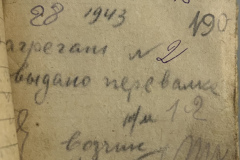 28 1943
190
агрегат N 2
выдано перевалке
р/м 12
возчик